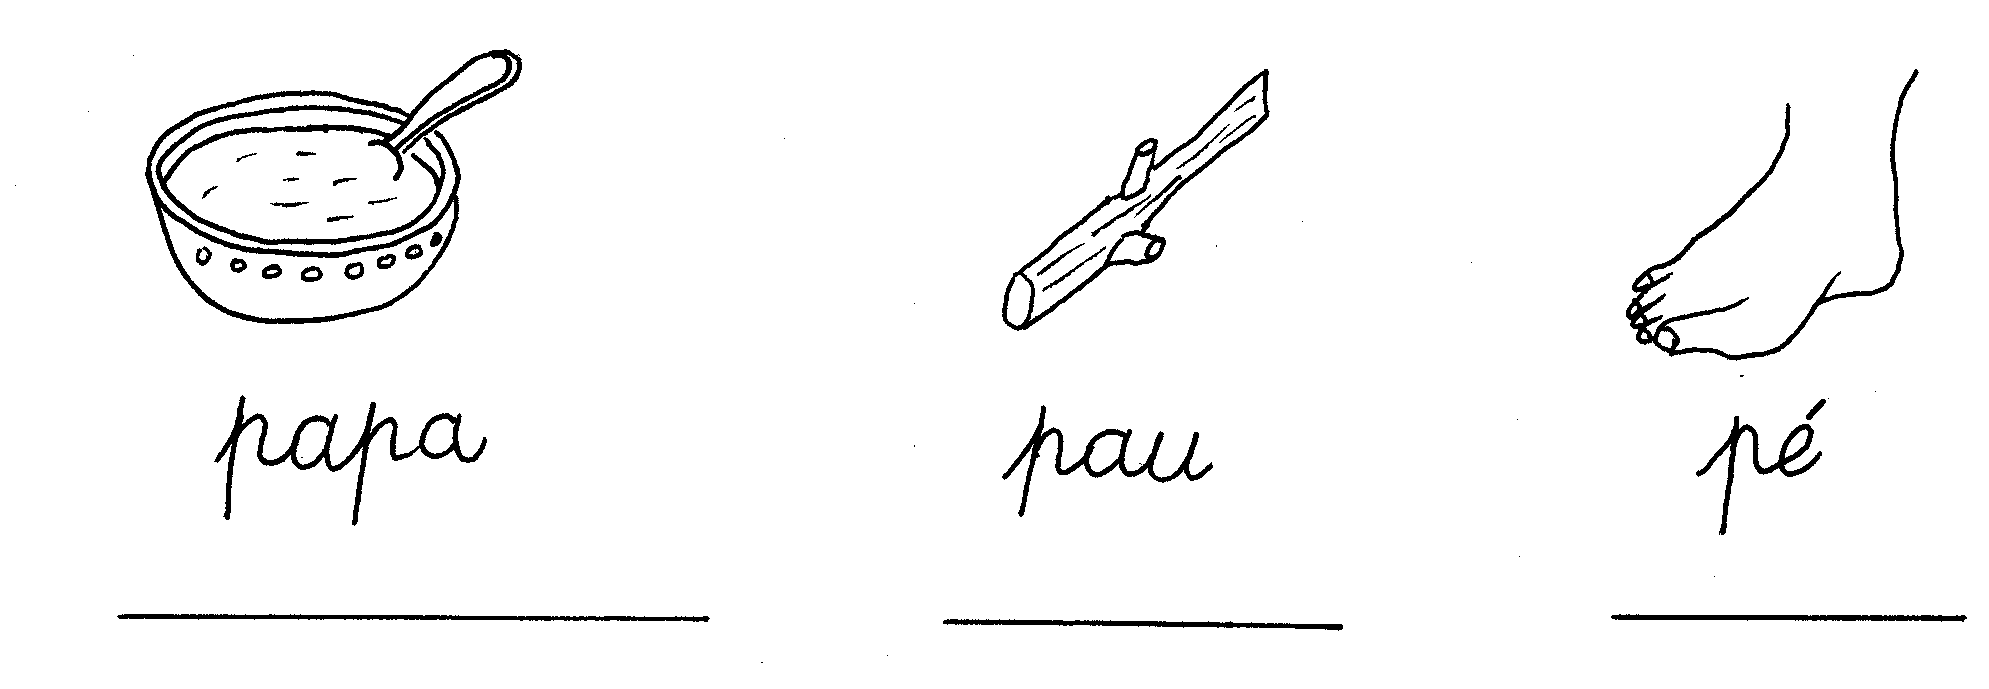 papa pau pé